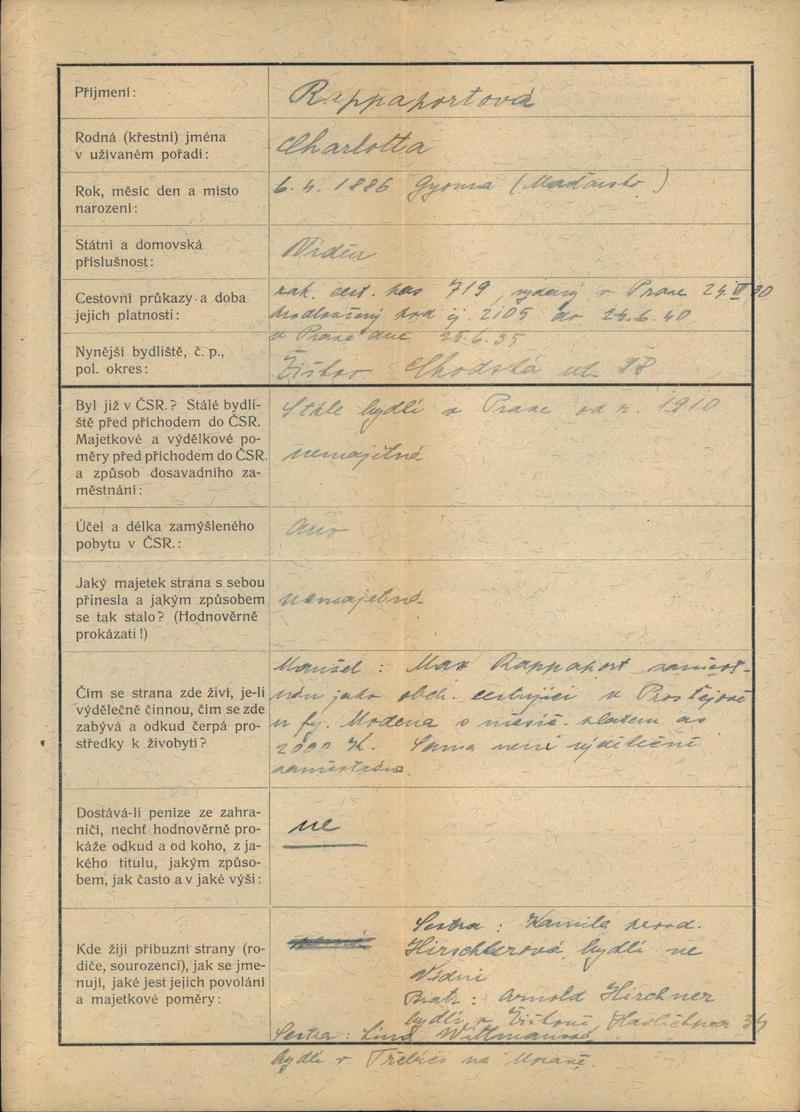 Příjmení: Rappaportová
Rodná (křestní) jména
v užívaném pořadí: Charlotta
Rok, měsíc den a místo
narození: 6. 4. 1886 Gyoma (Maďarsko)
Státní a domovská
příslušnost: Vídeň
Cestovní průkazy a doba
jejich platnosti: rak. cest. pas 719, vydaný v Praze 24. VI 30
prodloužený pod čj 2105 do 24. 6. 40
v Praze dne 25. 6. 35
Nynější bydliště, č. p.,
pol. okres: Žižkov Chodská ul. 18
Byl již v ČSR.? Stálé bydli-
ště před příchodem do ČSR.
Majetkové a výdělkové po-
měry před příchodem do ČSR.
a způsob dosavadního za-
městnání:
Stále bydlí v Praze od r. 1910
nemajetná
Účel a délka zamýšleného
pobytu v ČSR.:
Jaký majetek strana s sebou
přinesla a jakým způsobem
se tak stalo? (Hodnověrně
prokázati!)
nemajetná
Čím se strana zde živí, je-li
výdělečně činnou, čím se zde
zabývá a odkud čerpá pro-
středky k živobytí?
Manžel: Max Rappaport zaměst-
nán jako obch. cestující v Prostějově
u fy. Modena s měsíč. platem as
2000 K. Sama není výdělečně
zaměstnána.
Dostává-li peníze ze zahra-
ničí, nechť hodnověrně pro-
káže odkud a od koho, z ja-
kého titulu, jakým způso-
bem, jak často a v jaké výši:
ne
Kde žijí příbuzní strany (ro-
diče, sourozenci), jak se jme-
nují, jaké jest jejich povolání
a majetkové poměry:
Sestra: Kamila
Hirschlerová bydlí ve
Vídni
Bratr: Arnold Hirchner
bydlí v Žižkově Havlíčkova 34
Sestra: Wittmanová
bydlí v Třebíči na Moravě.